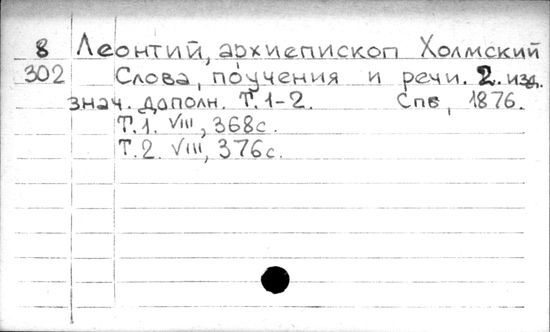 8 Леонтий, архиепископ Холмский
302 Слова, поучения и речи. 2. изд.
знач. дополн. Т. 1-2. Спб, 1876.
Т. 1. VIII, 368 с.
Т. 2. VIII, 376 с.